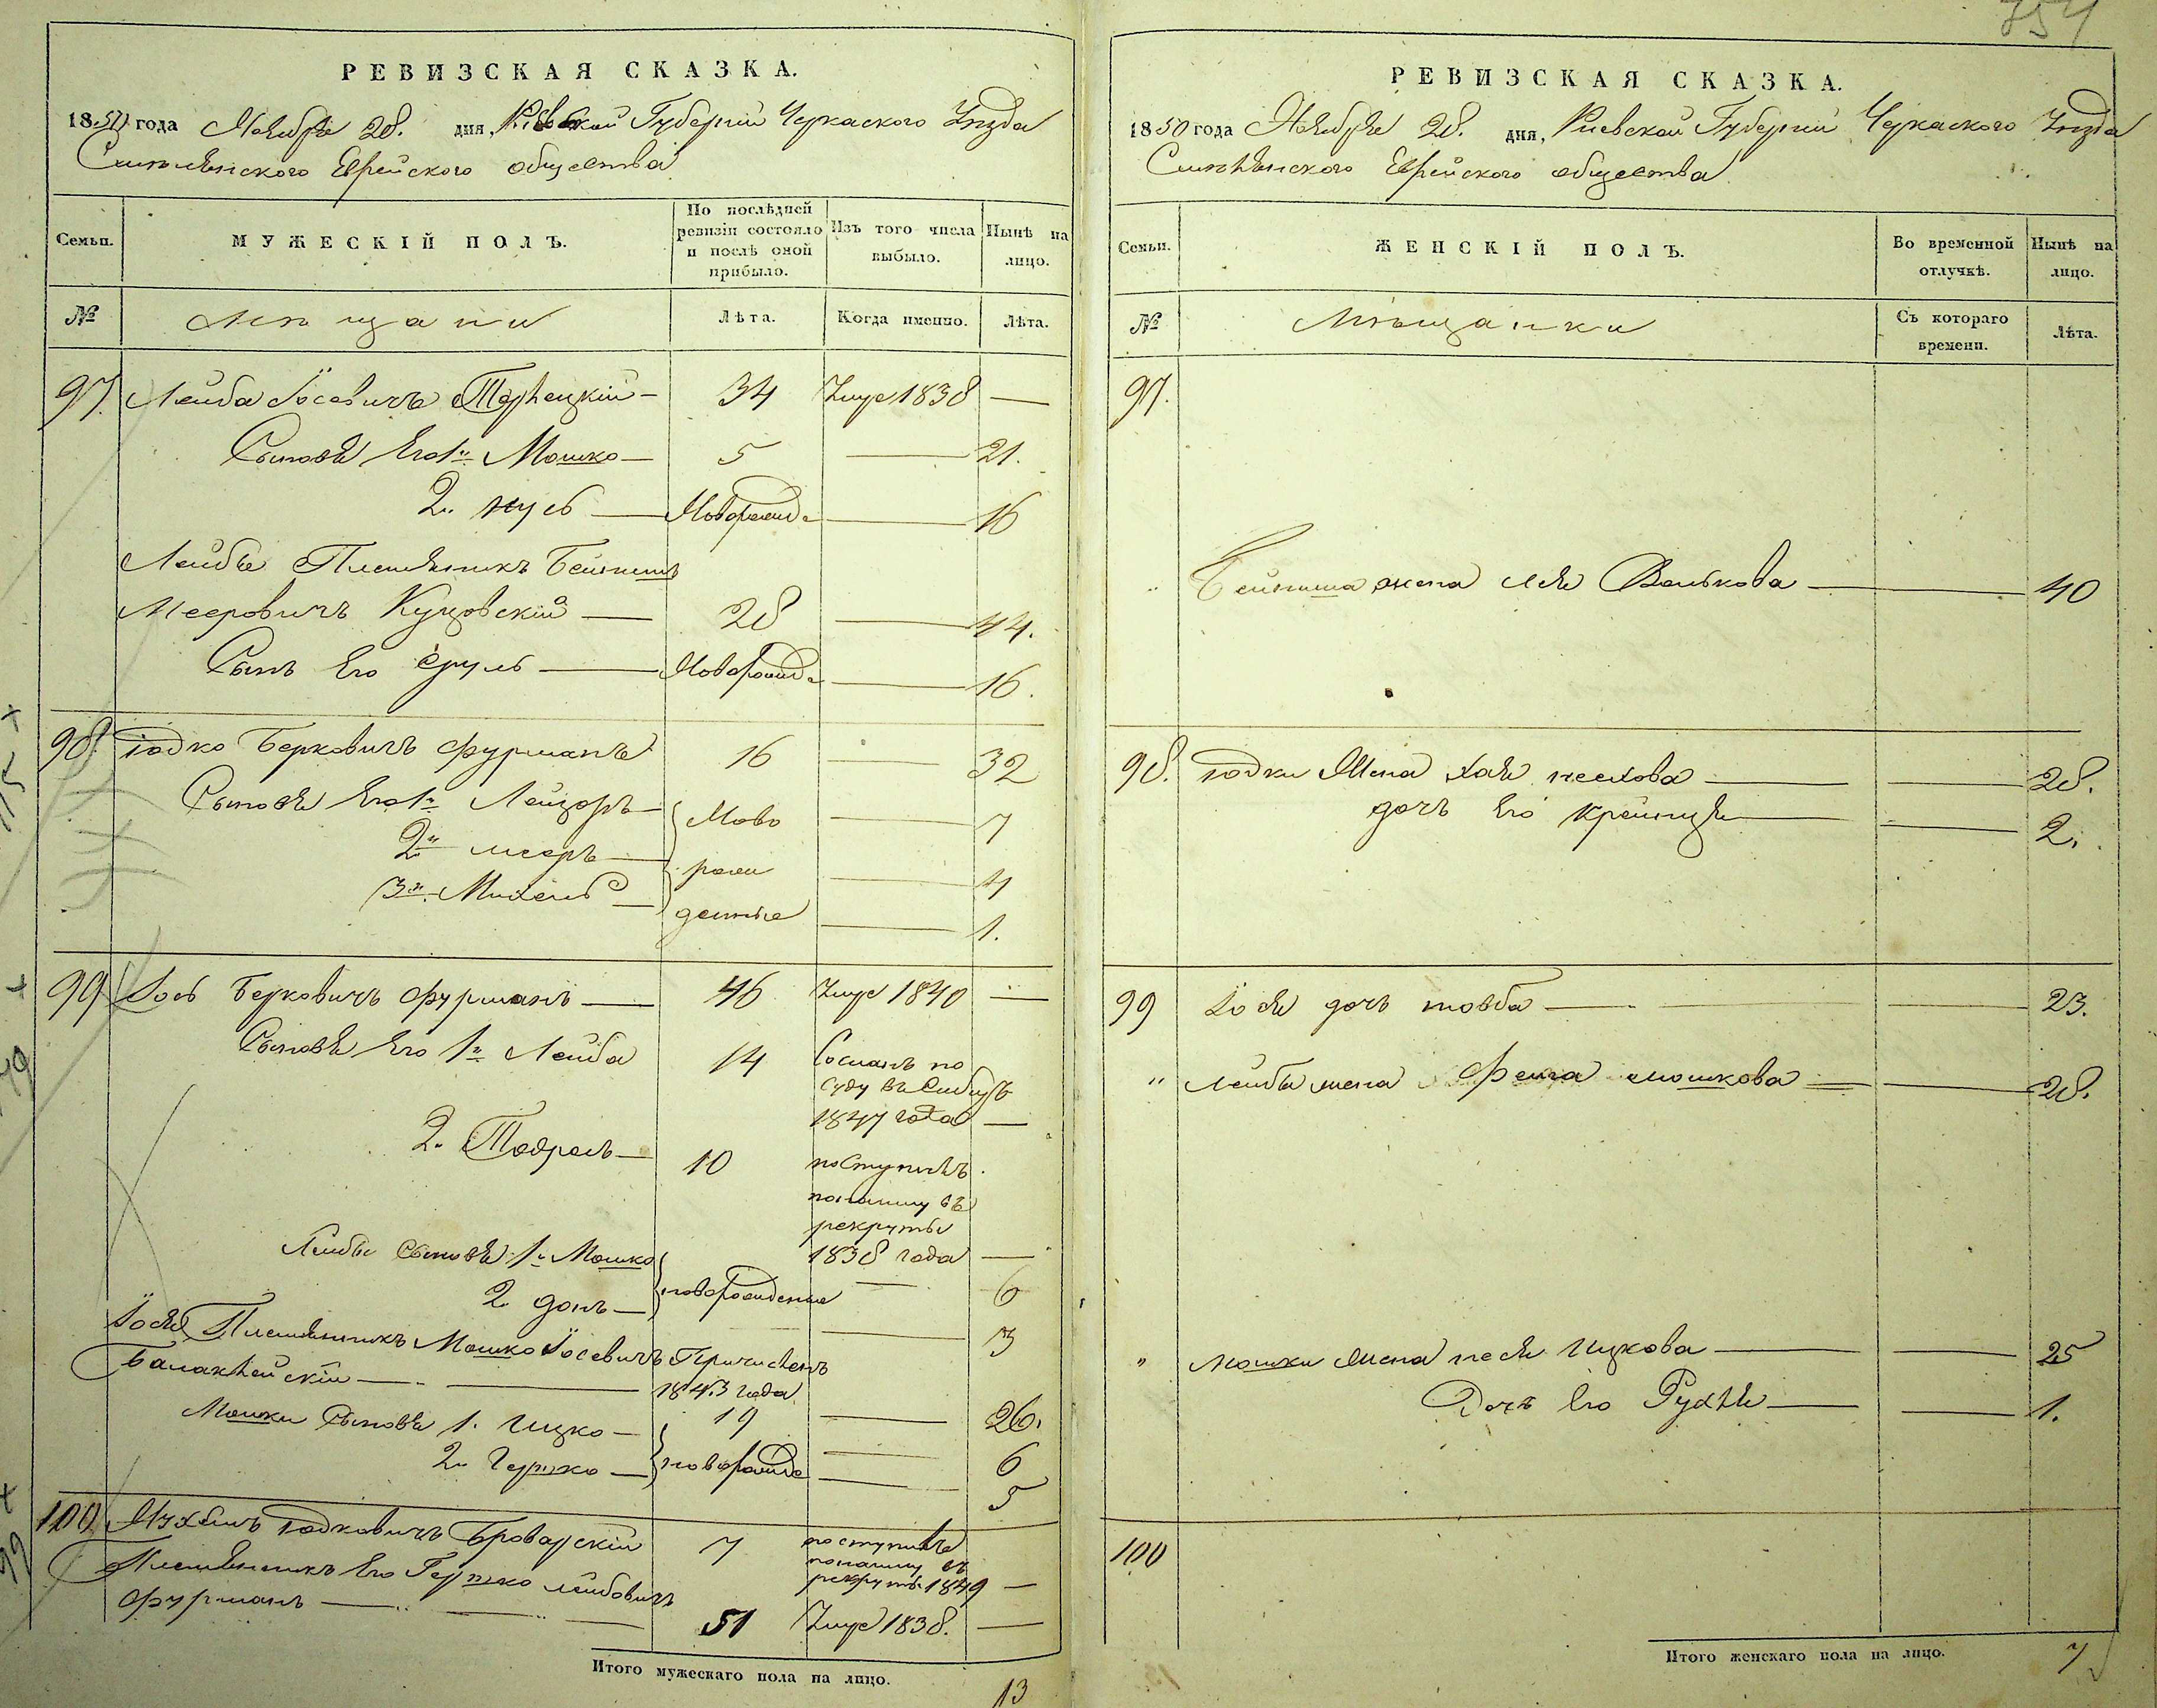 РЕВИЗСКАЯ СКАЗКА.
1850 года Ноября 28. дня, Киевской Губернии Черкаского Уѣзда
Смѣлянского Еврейского общества
Семьи.
МУЖЕСКІЙ ПОЛЪ.
По послѣдней ревизіи состояло и послѣ оной прибыло.
Изъ того числа выбыло.
Нынѣ на лицо.
№
мѣщани
Лѣта.
Когда именно.
Лѣта.
97. Лейба Іосевичъ — 34 Умре 1838 —
Сыновя Его 1й Мошко — 5 — 21.
2й нусъ — Новорожд: — 16
Лейбы Племянникъ Бейнишъ
Мееровичъ — 28 — 44.
Сынъ Его Сруль — Новорожд: — 16.
98. Іодко Берковичъ Фурманъ 16 — 32
Сыновя Его 1й Лейзоръ — Ново — 7
2й мееръ — рож — 4
3й Михель — денные — 1.
99 Іось Берковичъ Фурманъ — 46 Умре 1840 —
Сыновя Его 1й Лейба 14 Сосланъ по
суду въ Сибирь
1847 года —
2й Тодросъ — 10 поступилъ
рекруты
1838 года —
Лейбы Сыновя 1й Мошко
новорожденные — 6
2й донъ — — 3
Іося Племянникъ Мошко Іосевичъ Причисленъ
Балаклейскій — 1843 года
19 — 26.
Мошки Сыновя 1. Ицко — 6
2й Гершко — новорожд — 5
100 Нухимъ Іодковичъ Броварскій 7 поступилъ
въ
рекруты 1849 —
Племянникъ Его Гершко лейбовичъ
Фурманъ — 51 Умре 1838. —
Итого мужескаго пола на лицо.
13
РЕВИЗСКАЯ СКАЗКА.
1850 года Ноября 28. дня, Киевской Губернии Черкаского Уѣзда
Смѣлянского Еврейского общества
Семьи.
ЖЕНСКІЙ ПОЛЪ.
Во временной отлучкѣ.
Нынѣ на лицо.
№
Мѣщанки
Съ котораго времени.
Лѣта.
97.
" Бейниша жена Лея Волькова — 40
98. Іодки Жена Хая песахова — 28.
дочъ Его Крейнця — 2.
99 Іося дочъ товба — 23.
" Лейбы жена Фейга мошкова — 28.
" мошки жена песя Ицкова — 25
Дочъ Его Рухля — 1.
100
Итого женскаго пола на лицо. 7